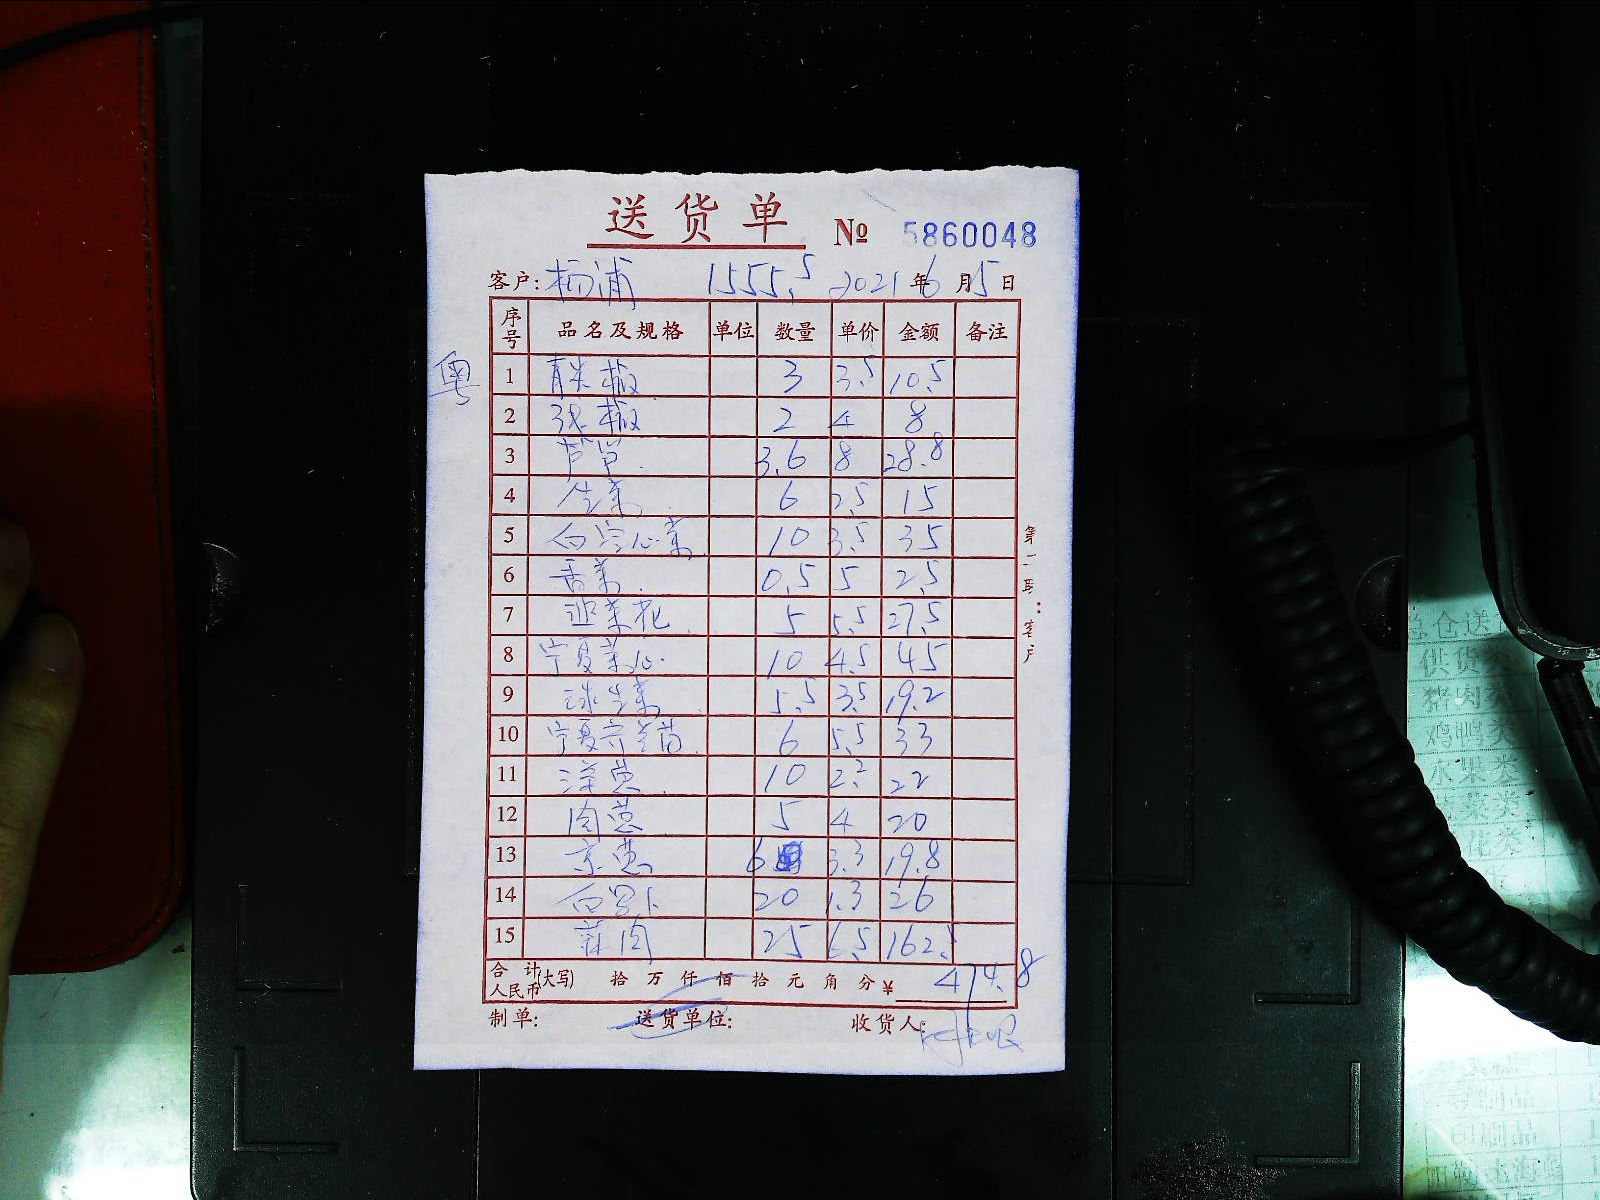 送货单 № 5860048
客户: 杨浦 1555.5 2021年6月15日
序号 品名及规格 单位 数量 单价 金额 备注
粤
1 青尖椒 3 3.5 10.5
2 红椒 2 4 8
3 芦笋 3.6 8 28.8
4 生菜 6 2.5 15
5 白空心菜 10 3.5 35
6 香菜 0.5 5 2.5
7 韭菜花 5 5.5 27.5
8 宁夏菜心 10 4.5 45
9 球生菜 5.5 3.5 19.2
10 宁夏芥兰苗 6 5.5 33
11 洋葱 10 2.2 22
12 肉葱 5 4 20
13 京葱 6 3.3 19.8
14 白罗卜 20 1.3 26
15 茄肉 25 6.5 162.5
合计人民币(大写) 拾 万 仟 佰 拾 元 角 分 ¥ 474.8
制单: 送货单位: 收货人:
第二联:客户
供货
猪肉类
鸡鸭类
水果类